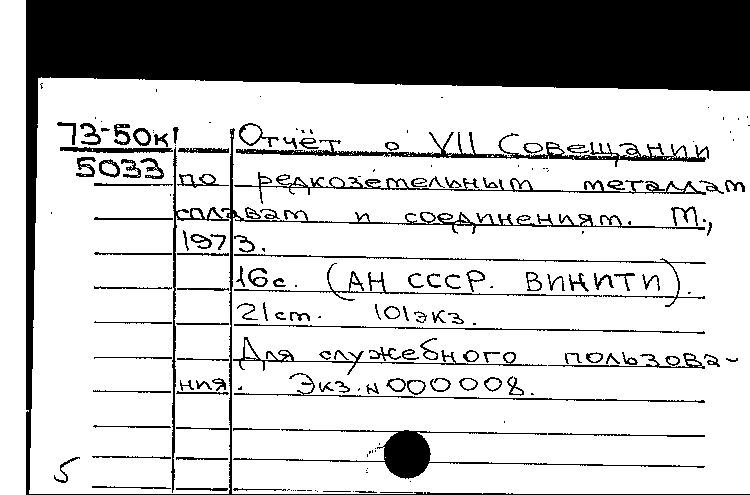 73-50к Отчёт о VII Совещании
5033 по редкоземельным металлам
сплавам и соединениям. М.,
1973.
16с. (АН СССР. ВИНИТИ).
21cm. 101экз.
Для служебного пользова-
ния. Экз. N 000008.
5